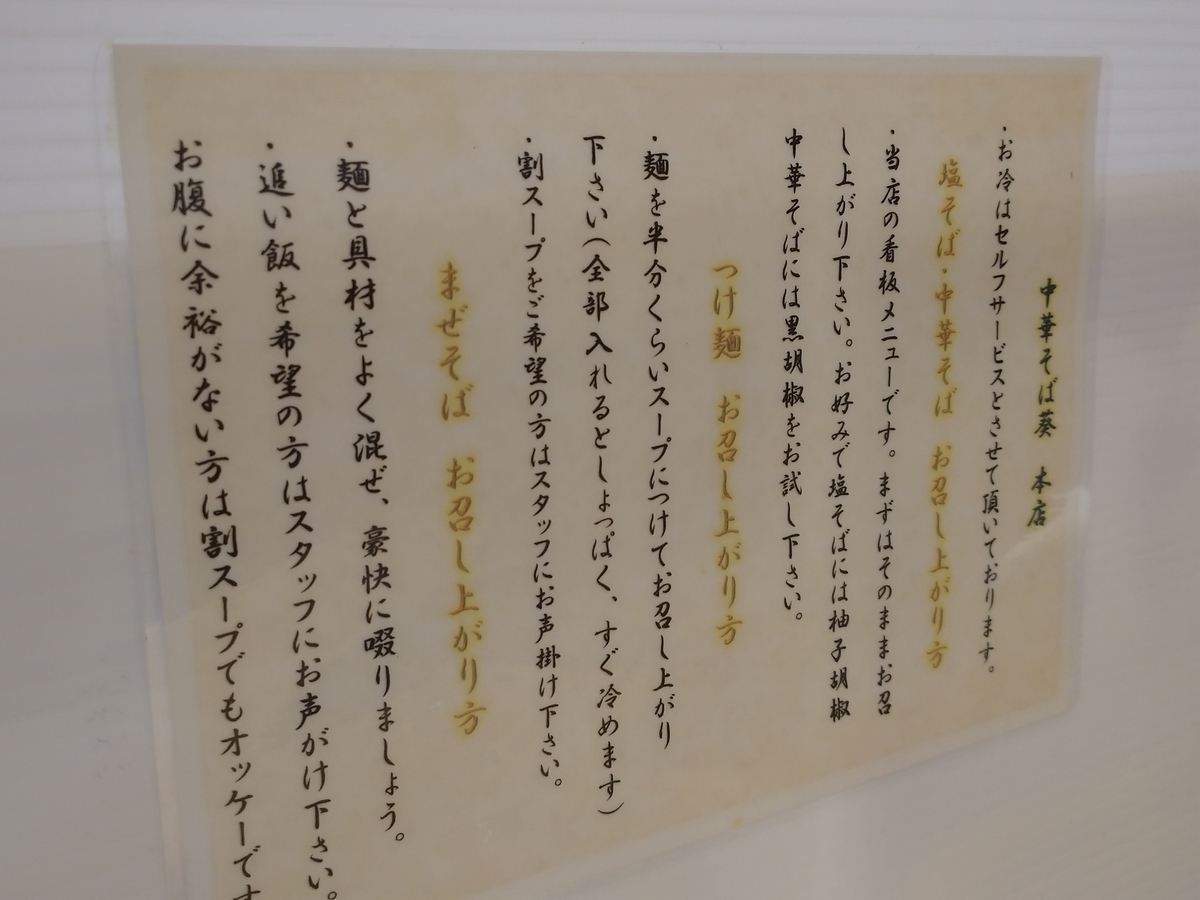 中華そば葵 本店
・お冷はセルフサービスとさせて頂いております。
塩そば・中華そば お召し上がり方
・当店の看板メニューです。まずはそのままお召
し上がり下さい。お好みで塩そばには柚子胡椒
中華そばには黒胡椒をお試し下さい。
つけ麺 お召し上がり方
・麺を半分くらいスープにつけてお召し上がり
下さい(全部入れるとしょっぱく、すぐ冷めます)
・割スープをご希望の方はスタッフにお声掛け下さい。
まぜそば お召し上がり方
・麺と具材をよく混ぜ、豪快に啜りましょう。
・追い飯を希望の方はスタッフにお声がけ下さい。
お腹に余裕がない方は割スープでもオッケーです